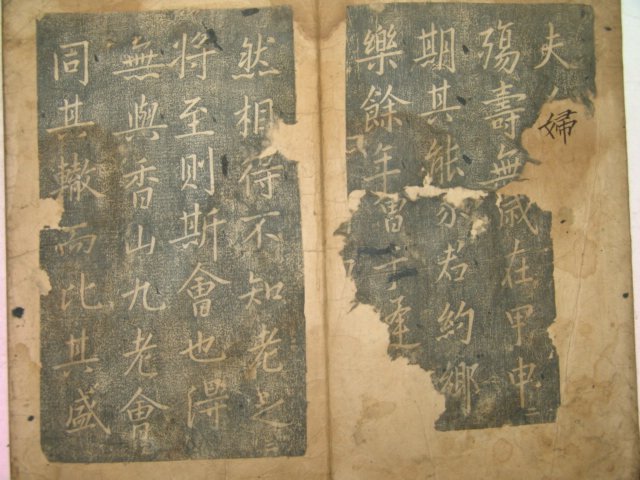 夫 婦
殤壽無 歲在甲申
期其能 若約鄉
樂餘年
然相 得不知老之
將至則斯會也得
無與香山九老會
同其轍而比其盛